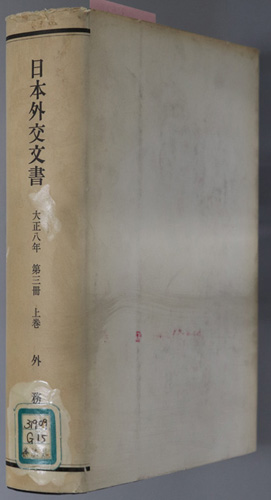 日本外交文書
大正八年 第三冊 上巻
外務
G15